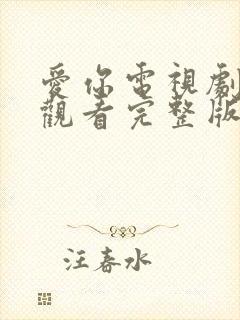 愛你電視劇
觀看完整版
汪春水